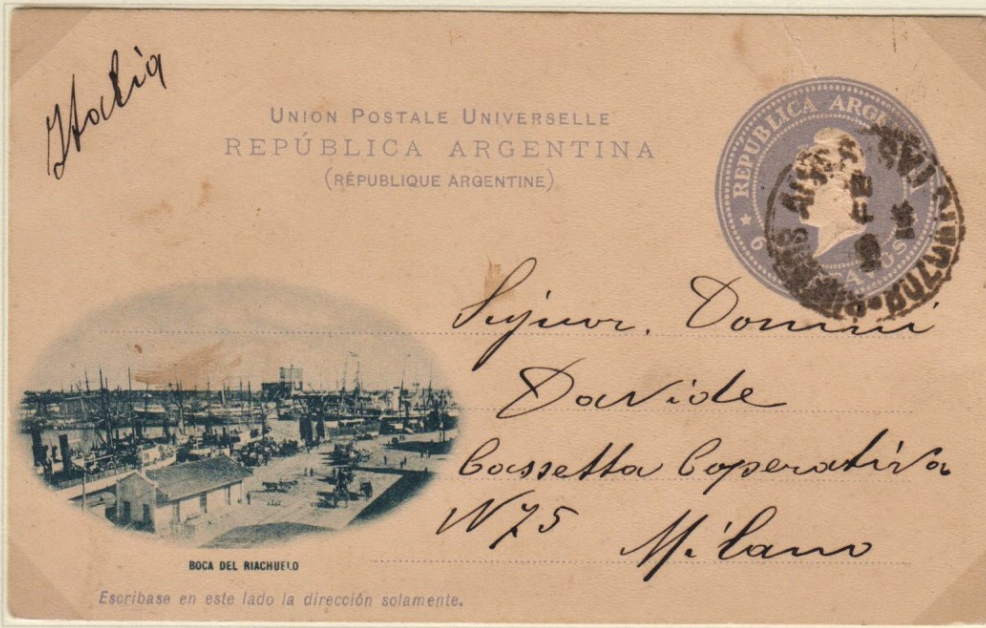 Italia
UNION POSTALE UNIVERSELLE
REPÚBLICA ARGENTINA
(RÉPUBLIQUE ARGENTINE)
REPÚBLICA ARGEN
6
AVOS
BUENOS AIRES
9 FE
Sigiuor. Domini
Davide
Cassetta Coperativa
N 75
Milano
BOCA DEL RIACHUELO
Escribase en este lado la dirección solamente.